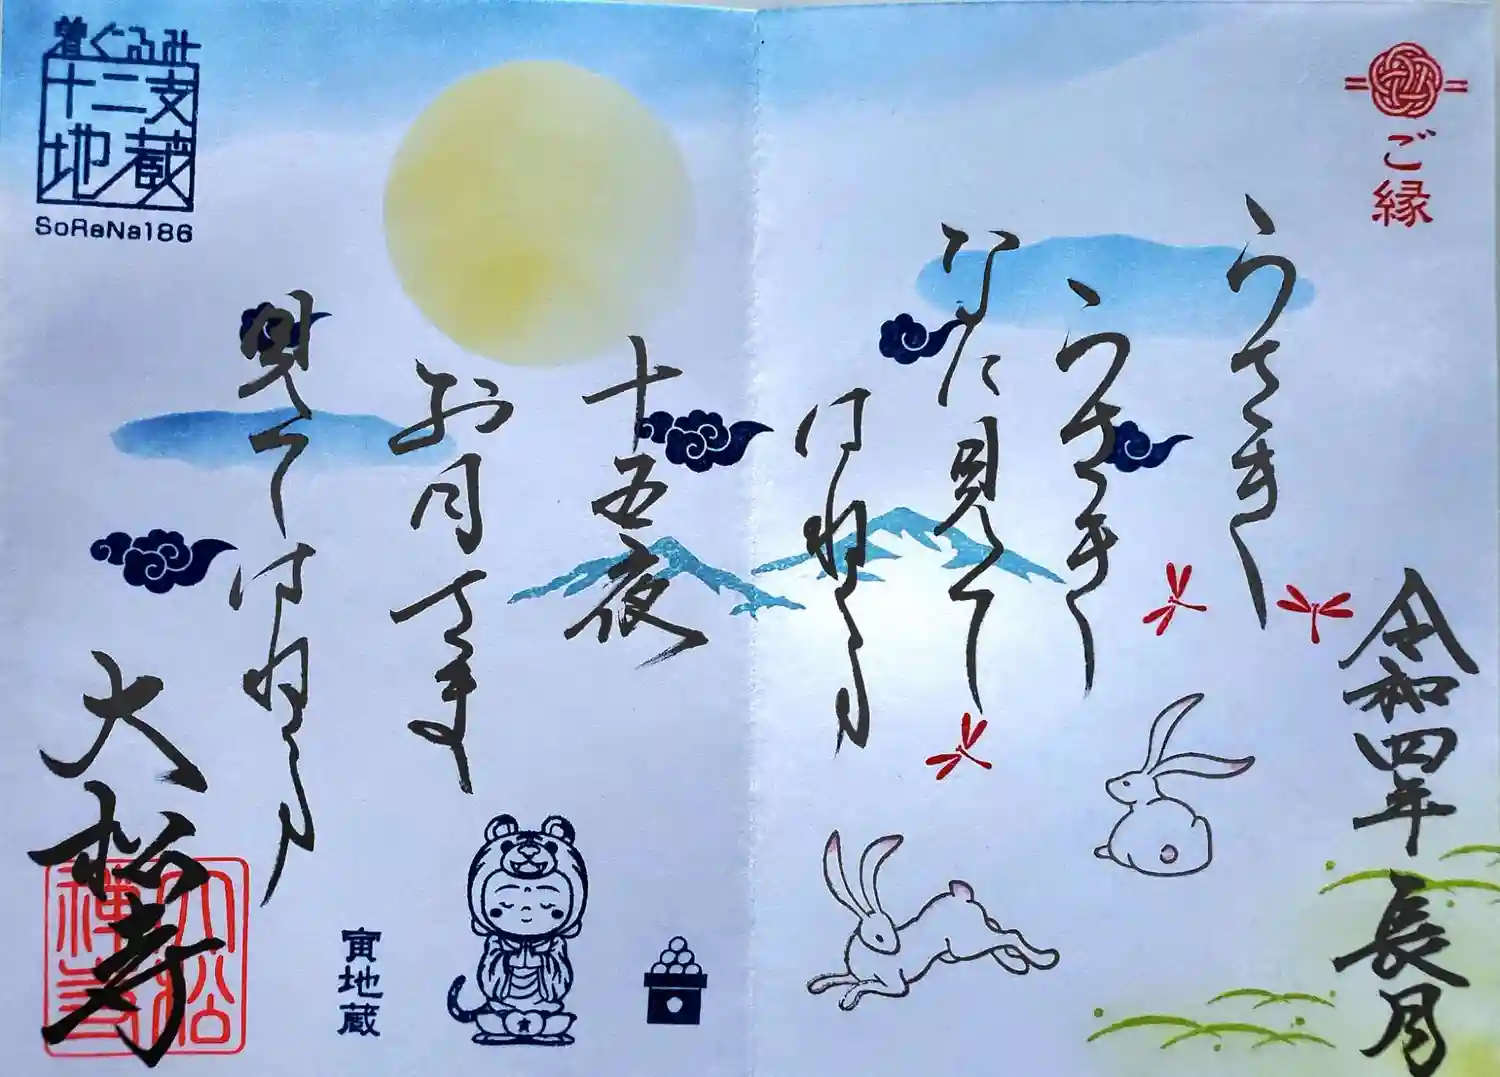 ご縁
令和四年長月
うさぎ
うさぎ
なに見て
はねる
十五夜
お月さま
見てはねる
大松寺
寅地蔵
着ぐるみ
十二支
地蔵
SoRaNa186